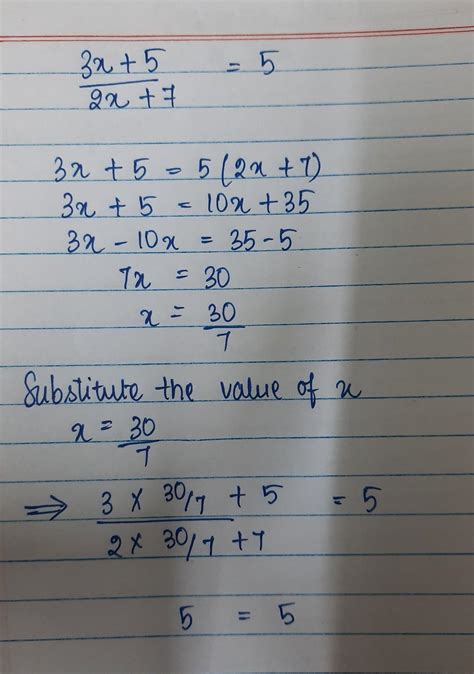 3x + 5 / 2x + 7 = 5
3x + 5 = 5(2x + 7)
3x + 5 = 10x + 35
3x - 10x = 35 - 5
7x = 30
x = 30/7
Substitute the value of x
x = 30/7
⇒ 3 × 30/7 + 5 / 2 × 30/7 + 7 = 5
5 = 5